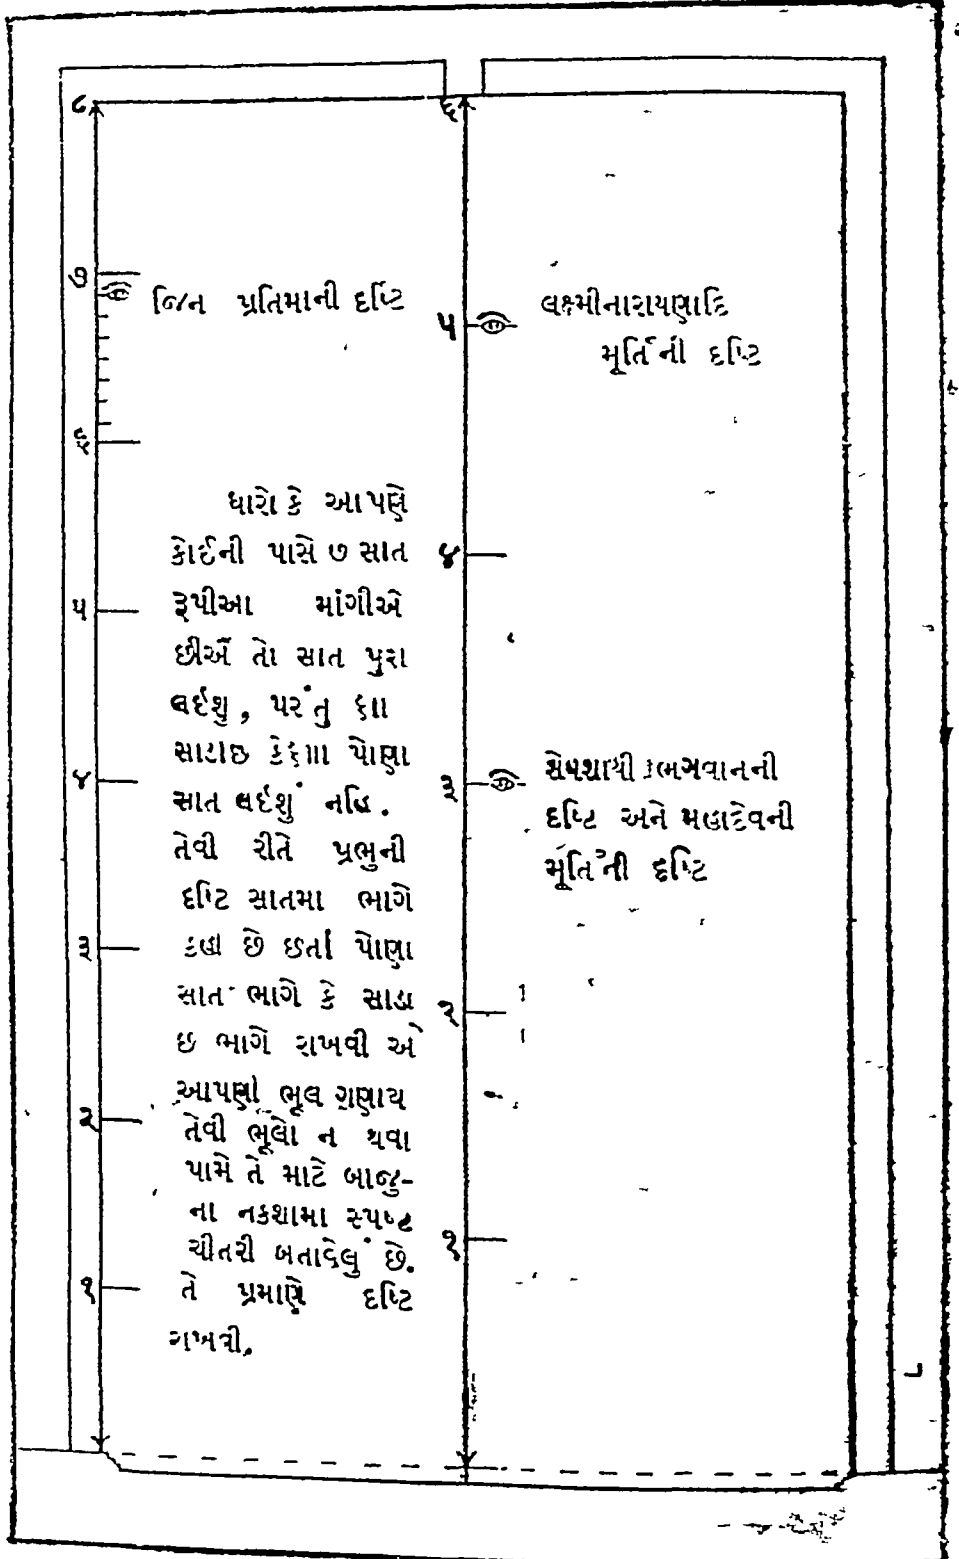 ૮
૭
જિન પ્રતિમાની દષ્ટિ
૬
૫
૪
૩
૨
૧
ધારો કે આપણે
કોઈની પાસે ૭ સાત
રૂપીઆ માંગીએ
છીએ તો સાત પુરા
લઈશુ, પરંતુ ૬॥
સાડાછ કે ૬॥ પોણા
સાત લઈશું નહિ.
તેવી રીતે પ્રભુની
દષ્ટિ સાતમા ભાગે
કહી છે છતાં પોણા
સાત ભાગે કે સાડા
છ ભાગે રાખવી એ
આપણી ભૂલ ગણાય
તેવી ભૂલો ન થવા
પામે તે માટે બાજુ-
ના નકશામા સ્પષ્ટ
ચીતરી બતાવેલું છે.
તે પ્રમાણે દષ્ટિ
રાખવી.
૬
૫
લક્ષ્મીનારાયણાદિ
મૂર્તિની દષ્ટિ
૪
૩
શેષશાયી ભગવાનની
દષ્ટિ અને મહાદેવની
મૂર્તિની દષ્ટિ
૨
૧